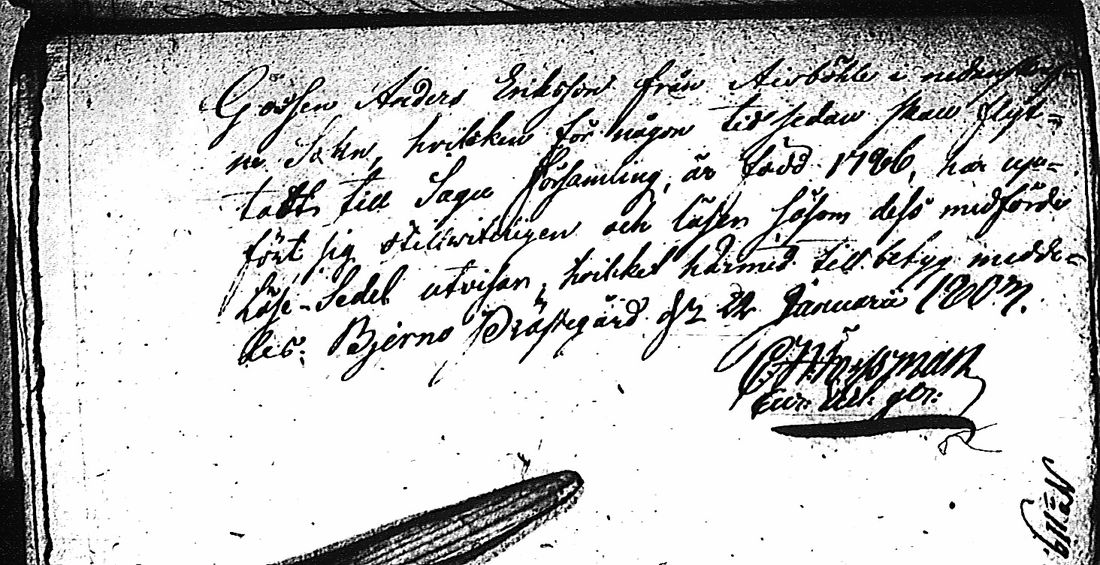 Gossen Anders Eriksson från Aisböhle i nedanskref-
ne Sokn, hvilken för någon tid sedan skall flyt-
tatt till Sagu Församling, är född 1786, har upp-
fört sig stillwiterligen och läser såsom dess medförde
Läse-Sedel utvisar, hvilket härmed till betyg medde-
les. Bjerno Prästegård d 22 Januarii 1807.
Cur: ger: